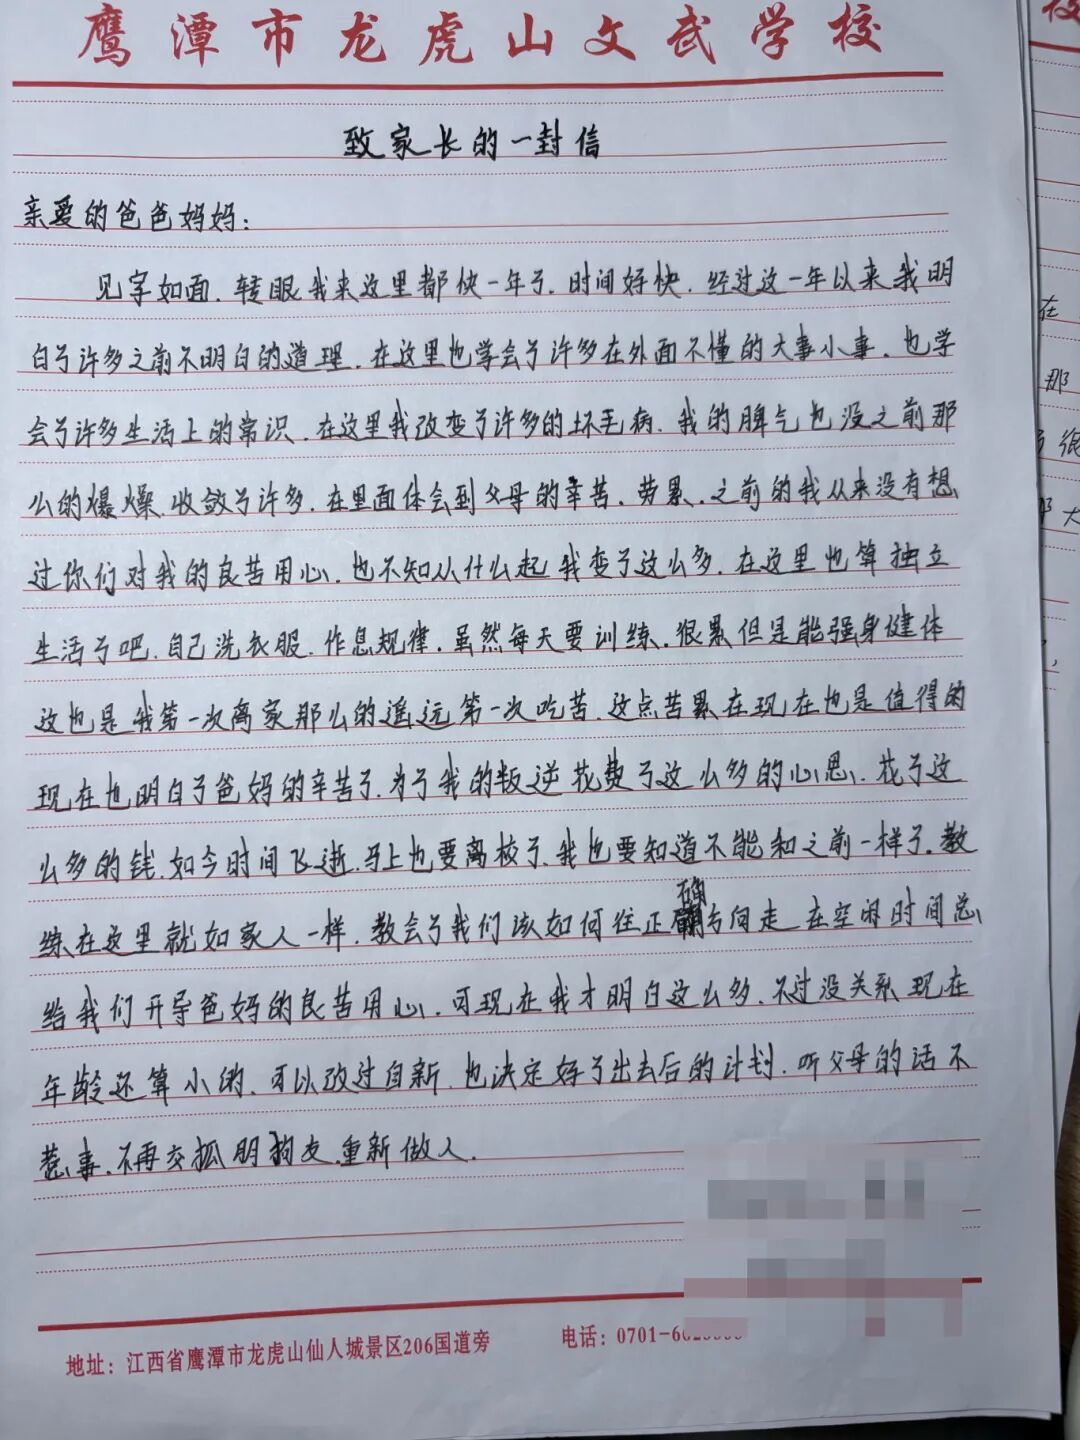 鹰潭市龙虎山文武学校
致家长的一封信
亲爱的爸爸妈妈：
见字如面.转眼我来这里都快一年了.时间好快.经过这一年以来我明
白了许多之前不明白的道理.在这里也学会了许多在外面不懂的大事小事.也学
会了许多生活上的常识.在这里我改变了许多的坏毛病.我的脾气也没之前那
么的爆燥.收敛了许多.在里面体会到父母的幸苦.劳累.之前的我从来没有想
过你们对我的良苦用心.也不知从什么起我变了这么多.在这里也算独立
生活了吧.自己洗衣服.作息规律.虽然每天要训练.很累但是能强身健体
这也是我第一次离家那么的遥远第一次吃苦.这点苦累在现在也是值得的
现在也明白了爸妈的辛苦了.为了我的叛逆花费了这么多的心思.花了这
么多的钱.如今时间飞逝.马上也要离校了.我也要知道不能和之前一样了.教
练在这里就如家人一样.教会了我们该如何往正确方向走在空闲时间总
给我们开导爸妈的良苦用心.可现在我才明白这么多.不过没关系现在
年龄还算小的.可以改过自新.也决定好了出去后的计划.听父母的话不
惹事.不再交狐朋狗友.重新做人.
地址：江西省鹰潭市龙虎山仙人城景区206国道旁
电话：0701-6
校
在
那
很
大